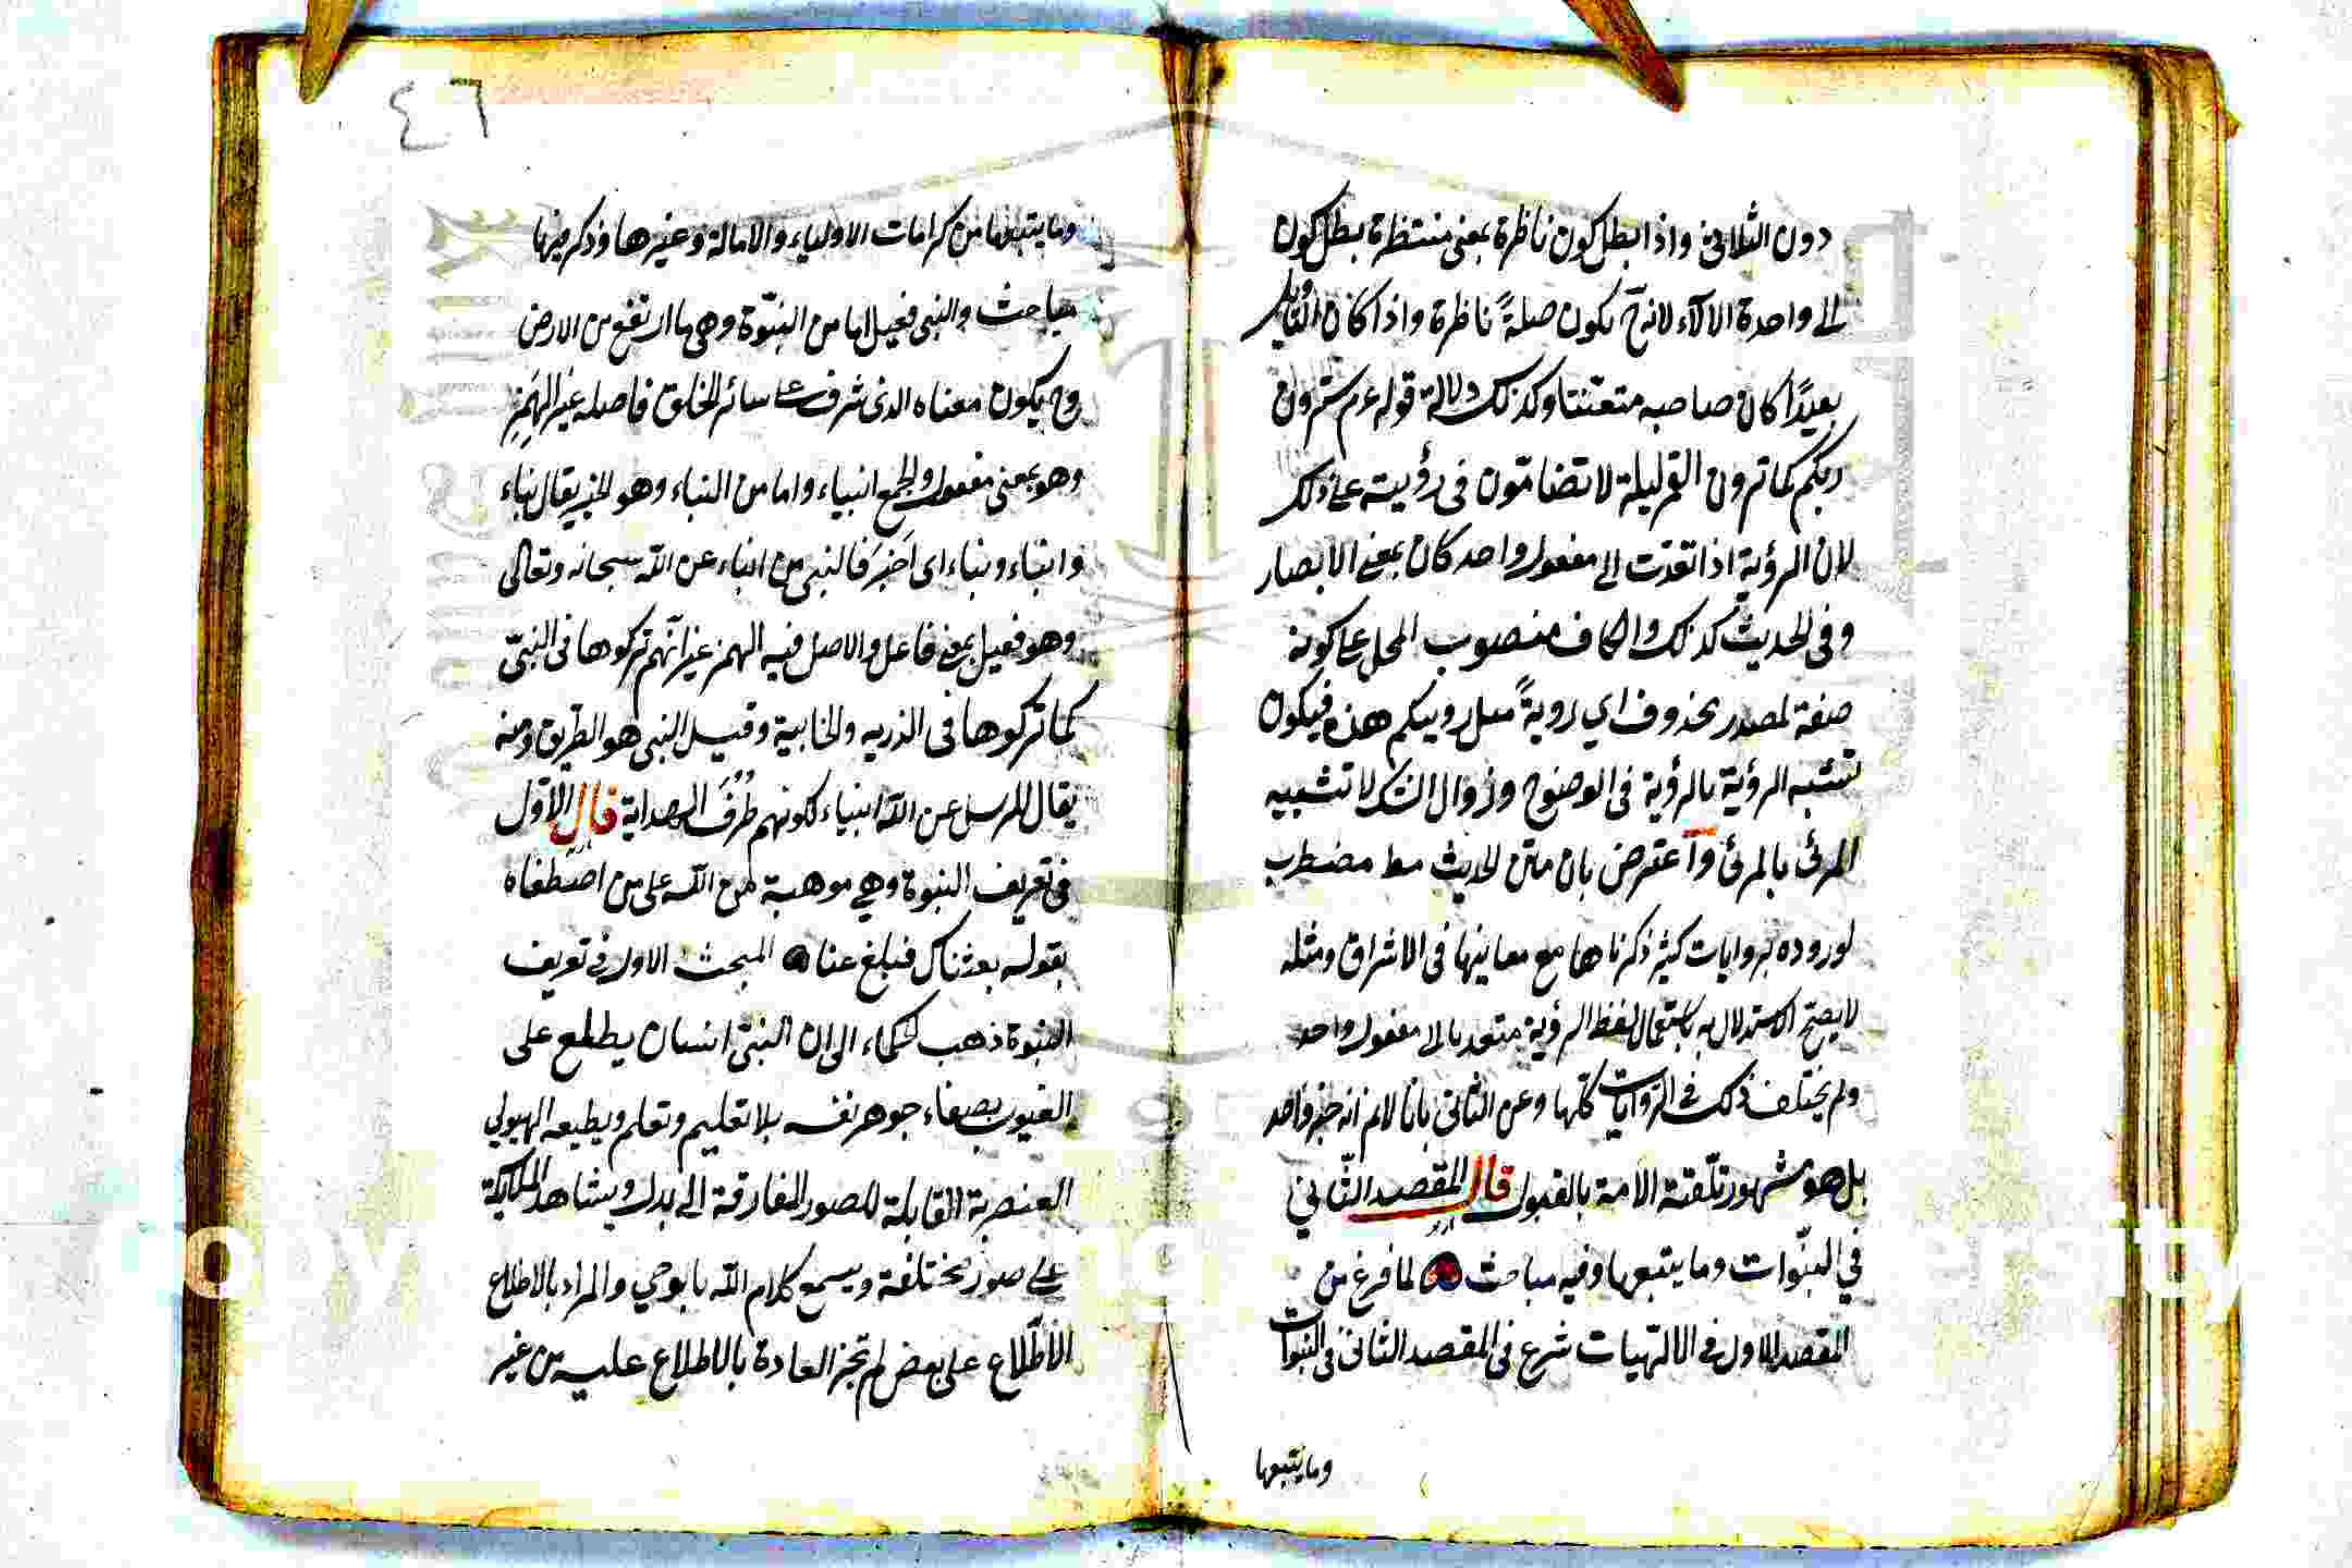 دون الثلاثي واذا بطل كون ناظرة بمعنى منتظرة بطل كون
الى واحدة الآلاء لانه ح يكون صلةً ناظرة واذا كان التأويل
بعيدًا كان صاحبه متعنتا وكذلك دلالة قوله عم سترون
ربكم كما ترون القمر ليلة لا تضامّون في رؤيته على ذلك
لان الرؤية اذا تعدّت الى مفعول واحد كان بمعنى الابصار
وفي الحديث كذلك والكاف منصوب المحل على كونه
صفة لمصدر محذوف اي روية مثل رويتكم هذه فيكون
تشبه الرؤية بالرؤية في الوضوح وزوال الشك لا تشبيه
المرئ بالمرئ واعترض بان متن الحديث مضطرب
لوروده بروايات كثيرة ذكرناها مع معانيها في الاشراق ومثله
لا يصح الاستدلال به باستعمال لفظ الرؤية متعديا الى مفعول واحد
ولم يختلف ذلك في الروايات كلّها وعن الثاني بانا لانم انه خبر واحد
بل هو مشهور تلّقته الامة بالقبول قال المقصد الثّاني
في النبّوات وما يتبعها وفيه مباحث لما فرغ من
المقصد الاول في الالهيات شرع في المقصد الثاني في النبوات
وما يتبعها
٤٦
وما يتبعها من كرامات الاولياء والامالة وغيرها وذكر فيها
مباحث والنبي فعيل اما من النبّوة وهي ما ارتفع من الارض
وح يكون معناه الذى شرف على سائر الخلق فاصله غير الهمز
وهو بمعنى مفعول والجمع انبياء واما من النباء وهو الخبر يقال نباء
وانباء ونباء اى اَخبَرَ فالنبي من انباء عن الله سبحانه وتعالى
وهو فعيل بمعنى فاعل والاصل فيه الهمز غير انّهم تركوها في النبيّ
كما تركوها في الذريه والخابية وقيل النبي هو الطريق ومنه
يقال للرسل عن الله انبياء لكونهم طُرُقَ الهداية قال الاوّل
في تعريف النبوة وهي موهبة من الله على من اصطفاه
بقوله بعثناك فبلغ عنا المبحث الاول في تعريف
النبوة ذهب الحكماء الى ان النبيّ انسان يطلع على
الغيوب بصفاء جوهر نفسه بلا تعليم وتعلم ويطيعه الهيولي
العنصرية القابلة للصور المفارقة الى بدل ويشاهد الملايكة
على صور مختلفة ويسمع كلام الله بالوحي والمراد بالاطلاع
الاطّلاع على بعض لم تجز العادة بالاطلاع عليه من غير